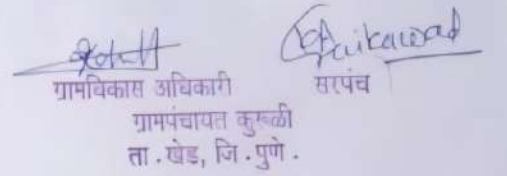 Gaikawad
ग्रामविकास अधिकारी सरपंच
ग्रामपंचायत कुरूळी
ता . खेड, जि . पुणे .